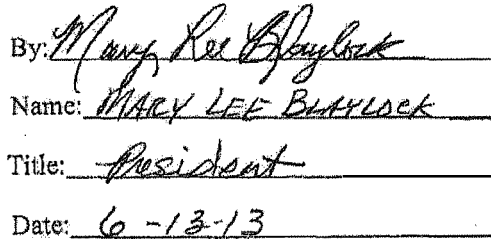 By: Mary Lee Blaylock
Name: MARY LEE BLAYLOCK
Title: President
Date: 6-13-13